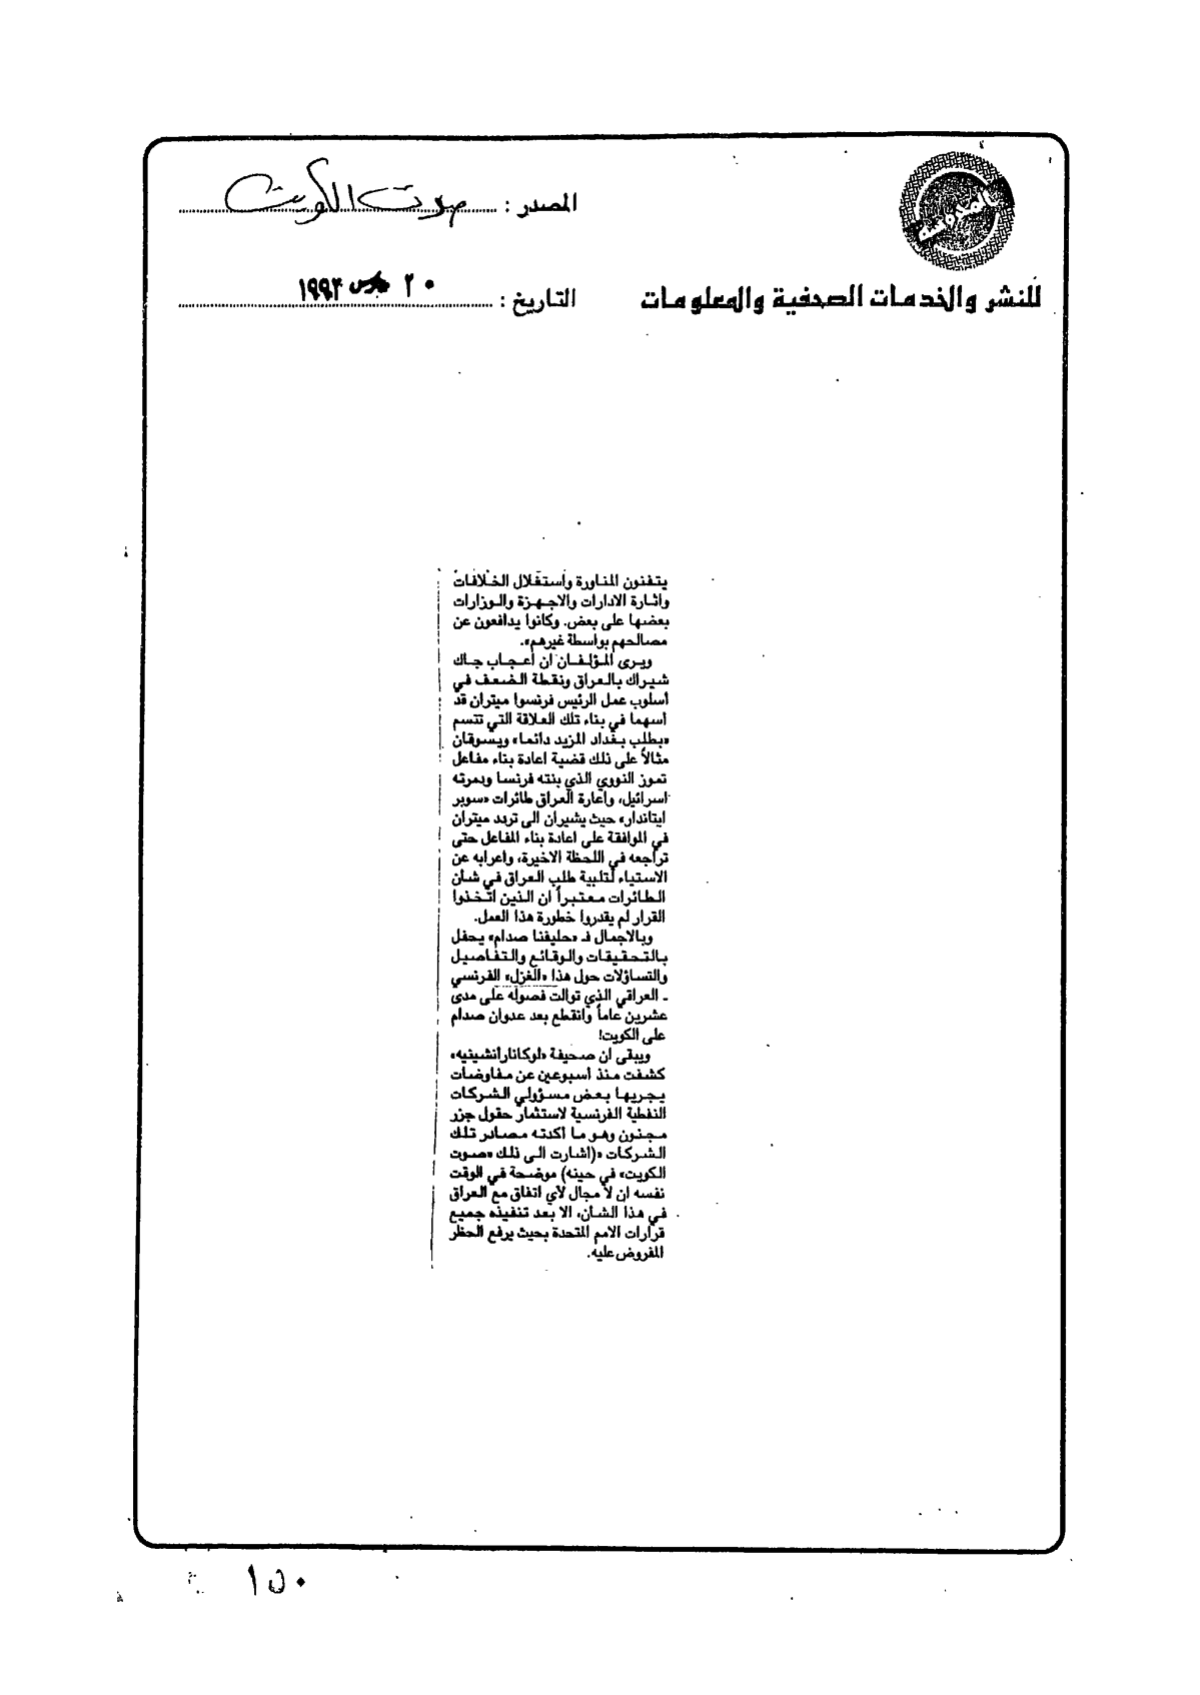 المصدر : صوت الكويت
للنشر والخدمات الصحفية والمعلومات
التاريخ : ٢٠ مارس ١٩٩٢
يتقنون المناورة واستغلال الخلافات
واثارة الادارات والاجهزة والوزارات
بعضها على بعض. وكانوا يدافعون عن
مصالحهم بواسطة غيرهم».
ويرى المؤلفان ان اعجاب جاك
شيراك بالعراق ونقطة الضعف في
أسلوب عمل الرئيس فرنسوا ميتران قد
أسهما في بناء تلك العلاقة التي تتسم
«بطلب بغداد المزيد دائما» ويسوقان
مثالاً على ذلك قضية اعادة بناء مفاعل
تموز النووي الذي بنته فرنسا ودمرته
اسرائيل، واعارة العراق طائرات «سوبر
ايتاندار» حيث يشيران الى تردد ميتران
في الموافقة على اعادة بناء المفاعل حتى
تراجعه في اللحظة الاخيرة، واعرابه عن
الاستياء لتلبية طلب العراق في شان
الطائرات معتبراً ان الذين اتخذوا
القرار لم يقدروا خطورة هذا العمل.
وبالاجمال فـ «حليفنا صدام» يحفل
بالتحقيقات والوقائع والتفاصيل
والتساؤلات حول هذا «الغزل» الفرنسي
ـ العراقي الذي توالت فصوله على مدى
عشرين عاماً وانقطع بعد عدوان صدام
على الكويت!
ويبقى ان صحيفة «لوكانار انشينيه»
كشفت منذ اسبوعين عن مفاوضات
يجريها بعض مسؤولي الشركات
النفطية الفرنسية لاستثمار حقول جزر
مجنون وهو ما اكدته مصادر تلك
الشركات «(اشارت الى ذلك «صوت
الكويت» في حينه) موضحة في الوقت
نفسه ان لا مجال لاي اتفاق مع العراق
في هذا الشان، الا بعد تنفيذه جميع
قرارات الامم المتحدة بحيث يرفع الحظر
المفروض عليه.
١٥٠